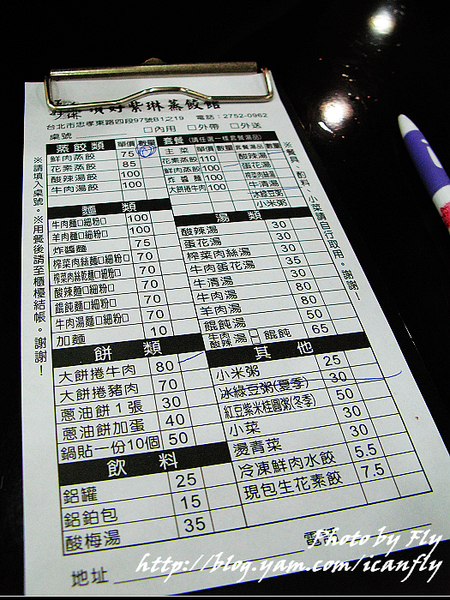 頂好紫琳蒸餃館
台北市忠孝東路四段97號B1之19 電話：2752-0962
桌號 □內用 □外帶 □外送
蒸餃類 單價 數量
鮮肉蒸餃 75
花素蒸餃 85
酸辣湯餃 100
牛肉湯餃 100
套餐
主菜 單價 數量
花素蒸餃 110
鮮肉蒸餃 100
炸醬麵 100
大餅捲牛肉 100
酸辣湯
蛋花湯
榨菜肉絲湯
牛清湯
冰綠豆粥
小米粥
麵類
牛肉麵□細粉□ 100
羊肉麵□細粉□ 100
炸醬麵 75
榨菜肉絲麵□細粉□ 70
榨菜肉絲乾麵□細粉□ 70
酸辣麵□細粉□ 70
餛飩麵□細粉□ 70
牛肉湯麵□細粉□ 70
加麵 10
湯類
酸辣湯 30
蛋花湯 30
榨菜肉絲湯 30
牛肉蛋花湯 35
牛清湯 30
牛肉湯 80
羊肉湯 85
餛飩湯 50
牛肉□ 酸辣□ 餛飩 65
餅類
大餅捲牛肉 80
大餅捲豬肉 70
蔥油餅1張 30
蔥油餅加蛋 40
鍋貼一份10個 50
其他
小米粥 25
冰綠豆粥(夏季) 30
紅豆紫米桂圓粥(冬季) 50
小菜 30
燙青菜 30
冷凍鮮肉水餃 5.5
現包生花素餃 7.5
飲料
鋁罐 25
鋁鉑包 15
酸梅湯 35
地址
※請填入桌號。※用餐後請至櫃檯結帳。謝謝！
小菜請自行取用。謝謝！
Photo by Fly
http://blog.yam.com/icanfly